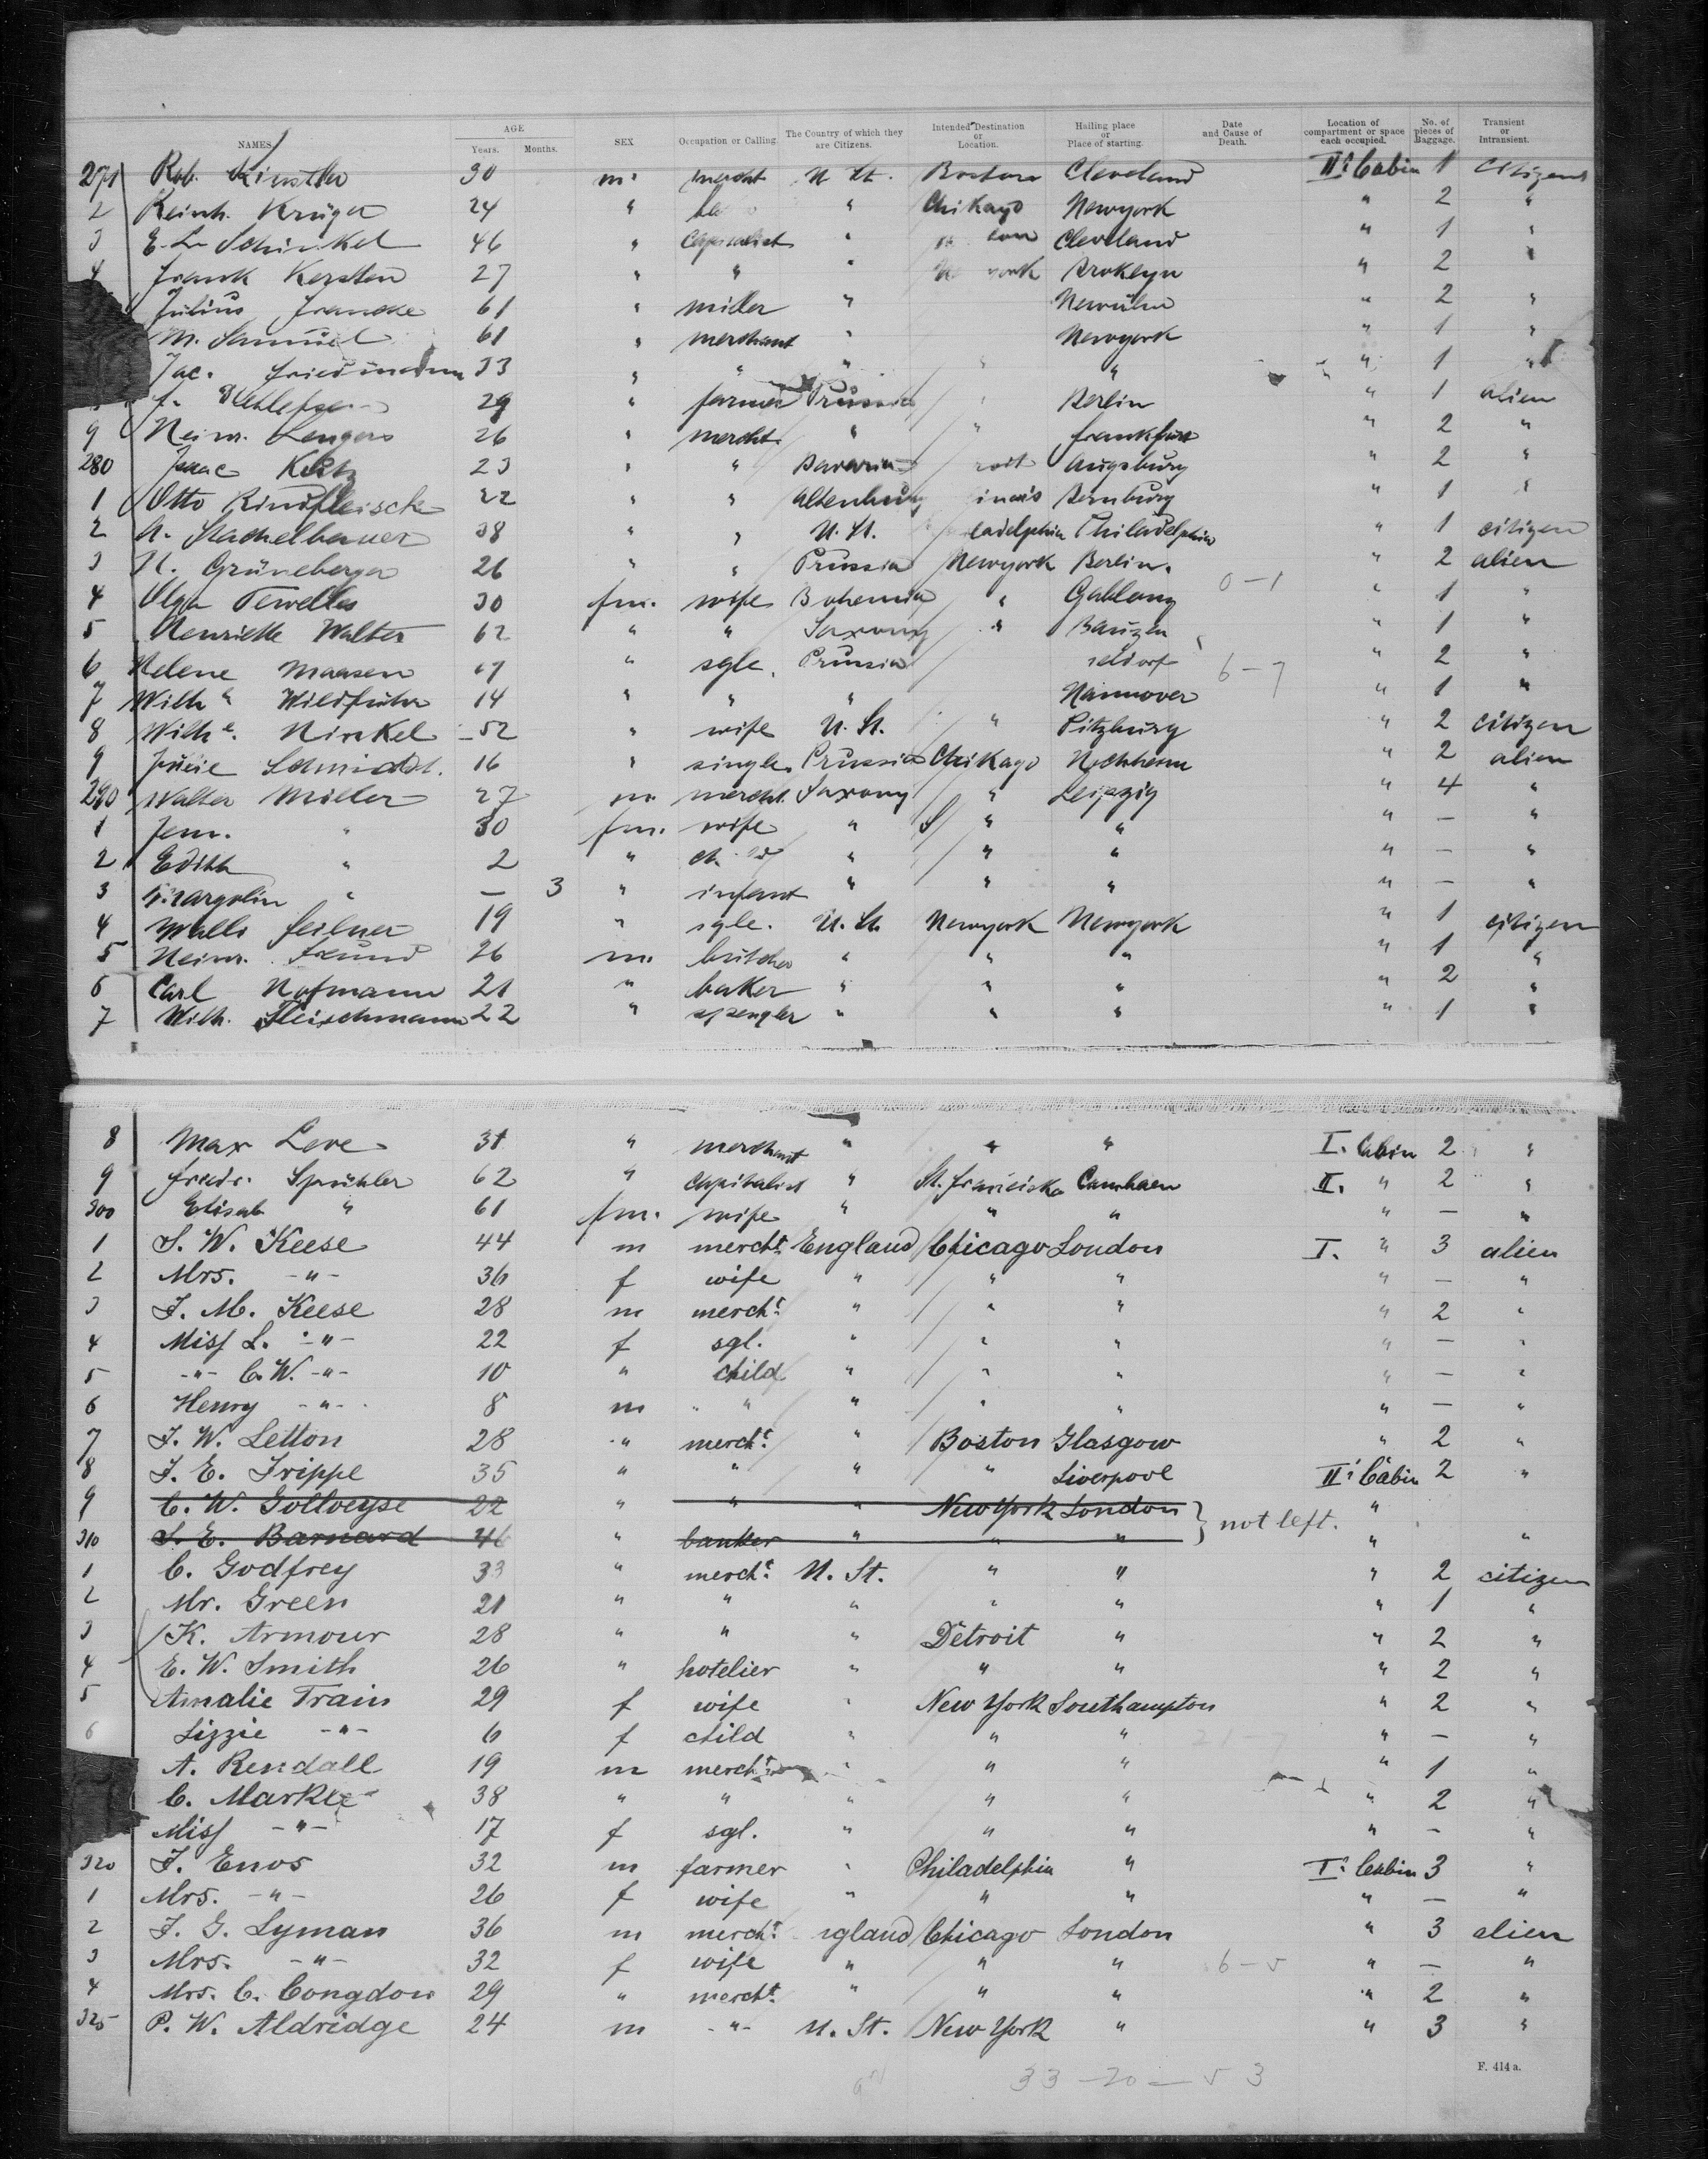 NAMES AGE Years. Months. SEX Occupation or Calling. The Country of which they are Citizens. Intended Destination or Location. Hailing place or Place of starting. Date and Cause of Death. Location of compartment or space each occupied. No. of pieces of Baggage. Transient or Intransient.
271 Rob. 30 m. mercht U. St. Boston Cleveland II. Cabin 1 citizens
2 Reinh. Krüger 24 " " Chikago Newyork " 2 "
3 E. L. Schinkel 46 " Capitalist " Cleveland " 1 "
4 Frank Kersten 27 " " " Broklyn " 2 "
Julius Francke 61 " miller " Newulm " 2 "
M. Samuel 61 " merchant " Newyork " 1 "
Jac. Friedmann 33 " " " " " 1 "
29 " farmer Prussia " Berlin " 1 alien
9 Heinr. Lengers 26 " mercht. " " Frankfurt " 2 "
280 Isaac 23 " " Bavaria Augsburg " 2 "
1 Otto Rindfleisch 22 " " Altenburg Bernburg " 1 "
2 A. Stachelbauer 38 " " U. St. Philadelphia " 1 citizen
3 H. Grüneberger 26 " " Prussia Newyork Berlin. " 2 alien
4 Olga Tewelles 30 fm. wife Bohemia " Gablong 0-1 " 1 "
5 Henriette Walter 62 " " Saxony " Bauzen " 1 "
6 Helene Maasen " sgle. Prussia 6-7 " 2 "
7 Wilhe Wildführ 14 " " " Hannover " 1 "
8 Wilhe. Hinkel 52 " wife U. St. " Pitzburg " 2 citizen
9 Schmidt. 16 " single Prussia Chikago " 2 alien
290 Walter Miller 27 m. mercht. Saxony " Leipzig " 4 "
1 Jem. " 30 fm. wife " " " " — "
2 Edith " 2 " " " " " — "
3 " — 3 " infant " " " " — "
4 19 " sgle. U. St. Newyork Newyork " 1 citizen
5 Heinr. Freund 26 m. butcher " " " " 1 "
6 Carl Hofmann 21 " baker " " " " 2 "
7 Wilh. Fleischmann 22 " spengler " " " " 1 "
8 Max Leve 31 " merchant " " " I. Cabin 2 "
9 Friedr. Sprühler 62 " Capitalist " St. Franciska II. " 2 "
300 Elisab " 61 fm. wife " " " " — "
1 S. W. Keese 44 m mercht. England Chicago London I. " 3 alien
2 Mrs. -"- 36 f wife " " " " — "
3 J. M. Keese 28 m mercht. " " " " 2 "
4 Miss L. -"- 22 f sgl. " " " " — "
5 -"- C. W. -"- 10 " child " " " " — "
6 Henry -"- 8 m " " " " " — "
7 J. W. Letton 28 " mercht. " Boston Glasgow " 2 "
8 J. E. Trippe 35 " " " " Liverpool II. Cabin 2 "
9 C. W. 22 " " " New York London "
310 S. E. Barnard 46 " banker " " " } not left. " "
1 C. Godfrey 33 " mercht. U. St. " " " 2 citizen
2 Mr. Green 21 " " " " " " 1 "
3 K. Armour 28 " " " Detroit " " 2 "
4 E. W. Smith 26 " hotelier " " " " 2 "
5 Amalie Train 29 f wife " New York Southampton " 2 "
6 Lizzie -"- 6 f child " " " " — "
A. Rendall 19 m mercht. " " " " 1 "
C. Markle 38 " " " " " " 2 "
Miss -"- 17 f sgl. " " " " — "
320 J. Enos 32 m farmer " Philadelphia " I. Cabin 3 "
1 Mrs. -"- 26 f wife " " " " — "
2 J. G. Lyman 36 m mercht. England Chicago London " 3 alien
3 Mrs. -"- 32 f wife " " " 6-5 " — "
4 Mrs. C. Congdon 29 " mercht. " " " " 2 "
325 P. W. Aldridge 24 m -"- U. St. New York " " 3 "
33 - 20 - 53
F. 414 a.